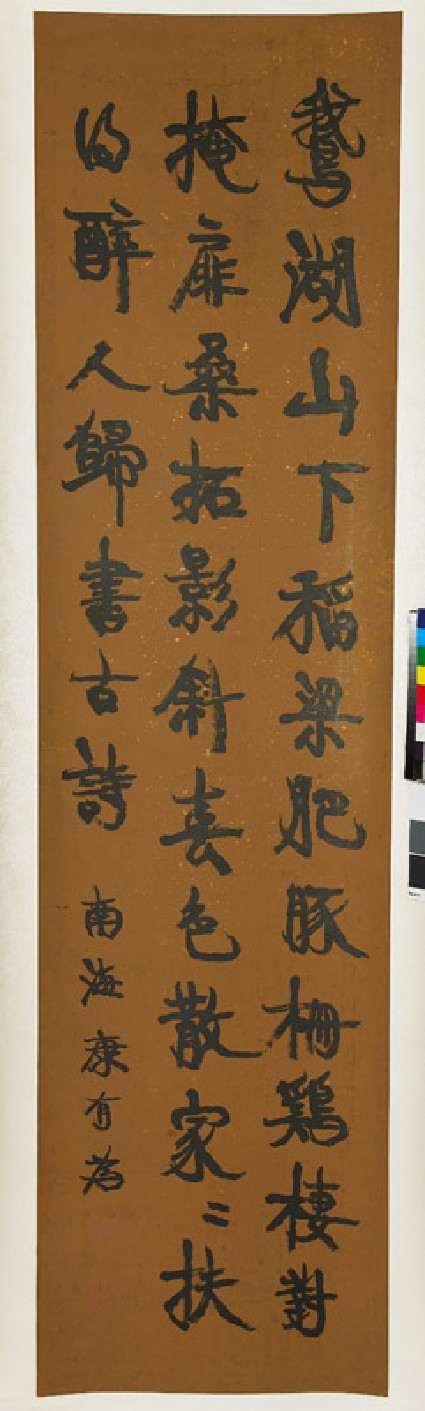 鵞湖山下稻梁肥豚柵鷄棲對
掩扉桑拓影斜春色散家〻扶
得醉人歸書古詩 南海康有為